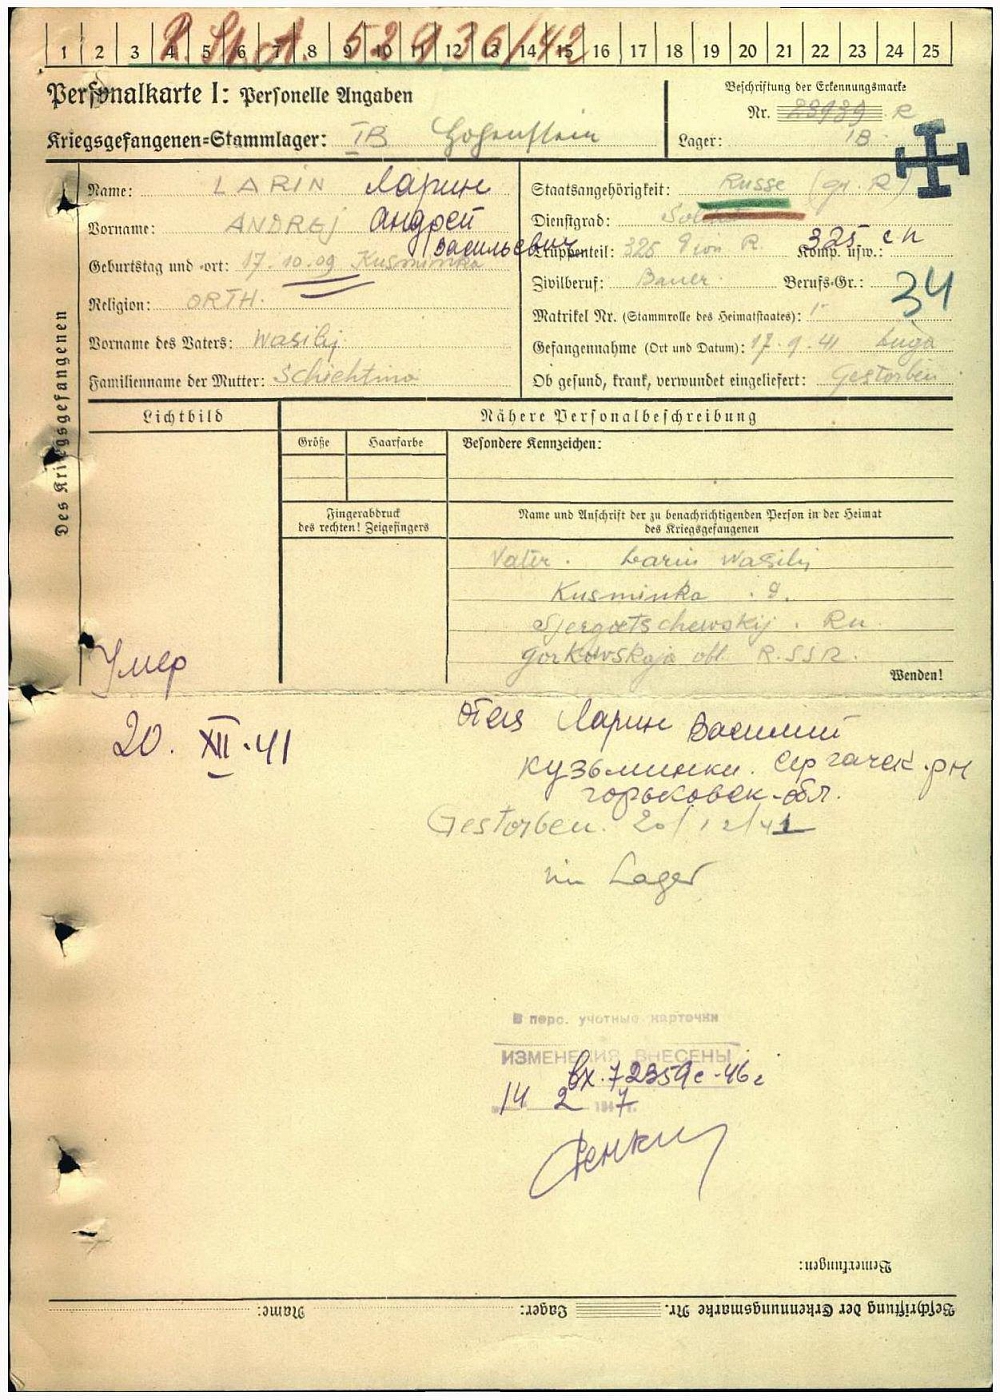 R. St. A. 52936/42
1 2 3 4 5 6 7 8 9 10 11 12 13 14 15 16 17 18 19 20 21 22 23 24 25
Personalkarte I: Personelle Angaben
Beschriftung der Erkennungsmarke
Nr. R
Kriegsgefangenen=Stammlager: IB Hohenstein
Lager: IB
Des Kriegsgefangenen
Name: LARIN Ларин
Staatsangehörigkeit: Russe (gr. R)
Vorname: ANDREJ Андрей
Dienstgrad: Soldat
Васильевич
Truppenteil: 325 R. Komp. usw.: 325 сп
Geburtstag und -ort: 17.10.09 Kusminka
Zivilberuf: Bauer Berufs-Gr.: 34
Religion: ORTH.
Matrikel Nr. (Stammrolle des Heimatstaates): -
Vorname des Vaters: Wasilij
Gefangennahme (Ort und Datum): 17.9.41 Luga
Familienname der Mutter: Schichtina
Ob gesund, krank, verwundet eingeliefert: Gestorben
Lichtbild
Nähere Personalbeschreibung
Größe Haarfarbe Besondere Kennzeichen:
Fingerabdruck
des rechten! Zeigefingers
Name und Anschrift der zu benachrichtigenden Person in der Heimat
des Kriegsgefangenen
Vater. Larin Wasilij
Kusminka . d.
Sjergatschewskij. Ru.
Gorkowskaja obl. R.SSR.
Wenden!
Умер
20. XII.41
Отец Ларин Василий
Кузьминки. Сергачек. рн
Горьковск. обл.
Gestorben. 20/12/41
im Lager
В перс. учетные карточки
ИЗМЕНЕНИЯ ВНЕСЕНЫ
вх. 72359с-46г
14 2 1947г.
Bemerkungen:
Name: Lager: Beschriftung der Erkennungsmarke Nr.